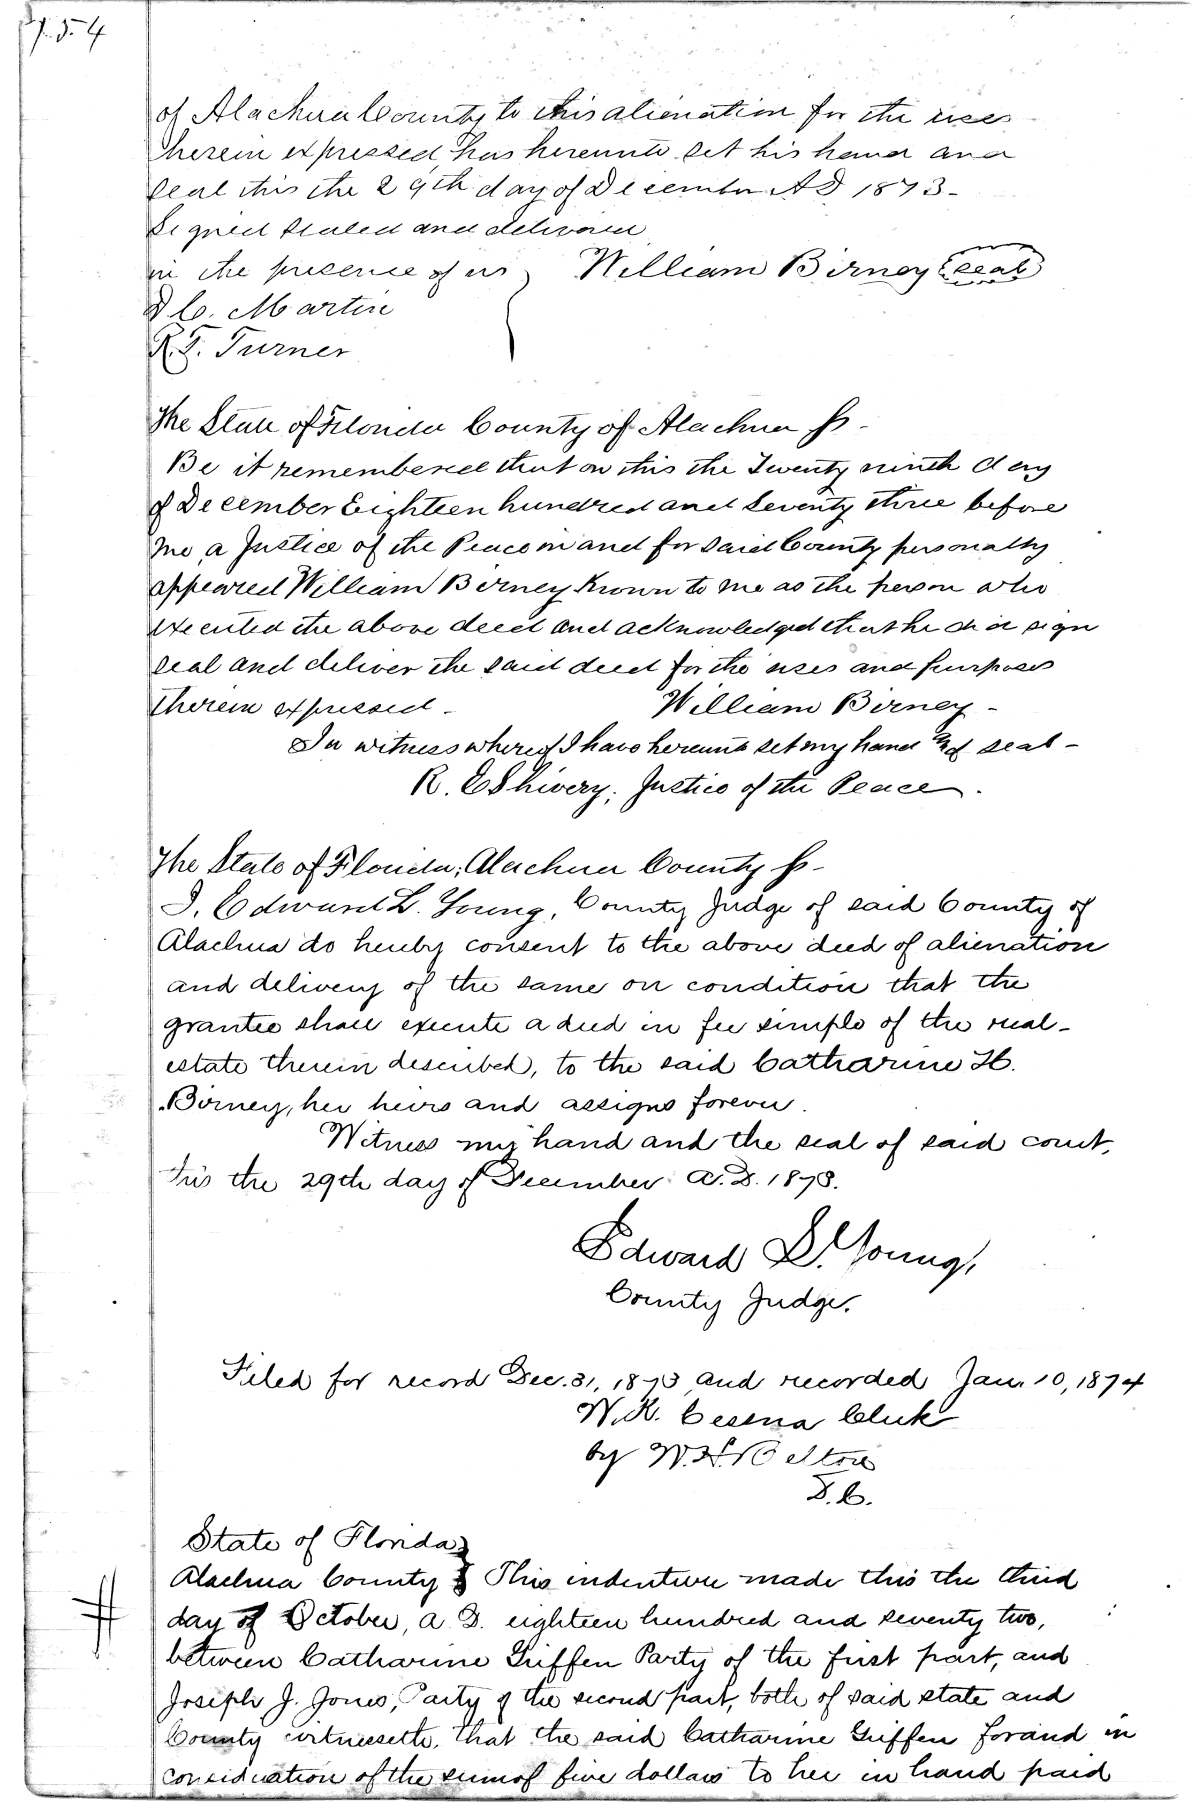 754
of Alachua County to this alienation for the uses
therein expressed, has hereunto set his hand and
seal this the 29th day of December A D 1873-
Signed sealed and delivered
in the presence of us } William Birney (seal)
D C. Martin
R. F. Turner
The State of Florida County of Alachua ss-
Be it remembered that on this the Twenty ninth day
of December Eighteen hundred and seventy three before
me, a Justice of the Peace in and for said County personally
appeared William Birney known to me as the person who
executed the above deed and acknowledged that he did sign
seal and deliver the said deed for the uses and purposes
therein expressed- William Birney-
In witness whereof I have hereunto set my hand and seal-
R. E Shivery, Justice of the Peace.
The State of Florida, Alachua County ss-
I, Edward L. Young, County Judge of said County of
Alachua do hereby consent to the above deed of alienation
and delivery of the same on condition that the
grantee shall execute a deed in fee simple of the real-
estate therein described, to the said Catharine H.
Birney, her heirs and assigns forever.
Witness my hand and the seal of said court,
this the 29th day of December A.D. 1873.
Edward L. Young,
County Judge.
Filed for record Dec. 31, 1873 and recorded Jan. 10, 1874
W. K. Cessna Clerk
by W. H. Belton
D. C.
State of Florida }
Alachua County } This indenture made this the third
day of October, A. D. eighteen hundred and seventy two,
between Catharine Griffen Party of the first part, and
Joseph J. Jones, Party of the second part, both of said state and
County witnesseth, that the said Catharine Griffen for and in
consideration of the sum of five dollars to her in hand paid